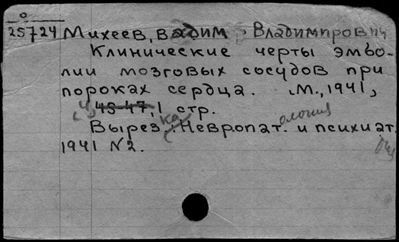 0
25724 Михеев, Вадим Владимирович
Клинические черты эмбо-
лии мозговых сосудов при
пороках сердца. М., 1941,
45-47, 1 стр.
Вырезка Невропатология и психиат.
1941 N2.